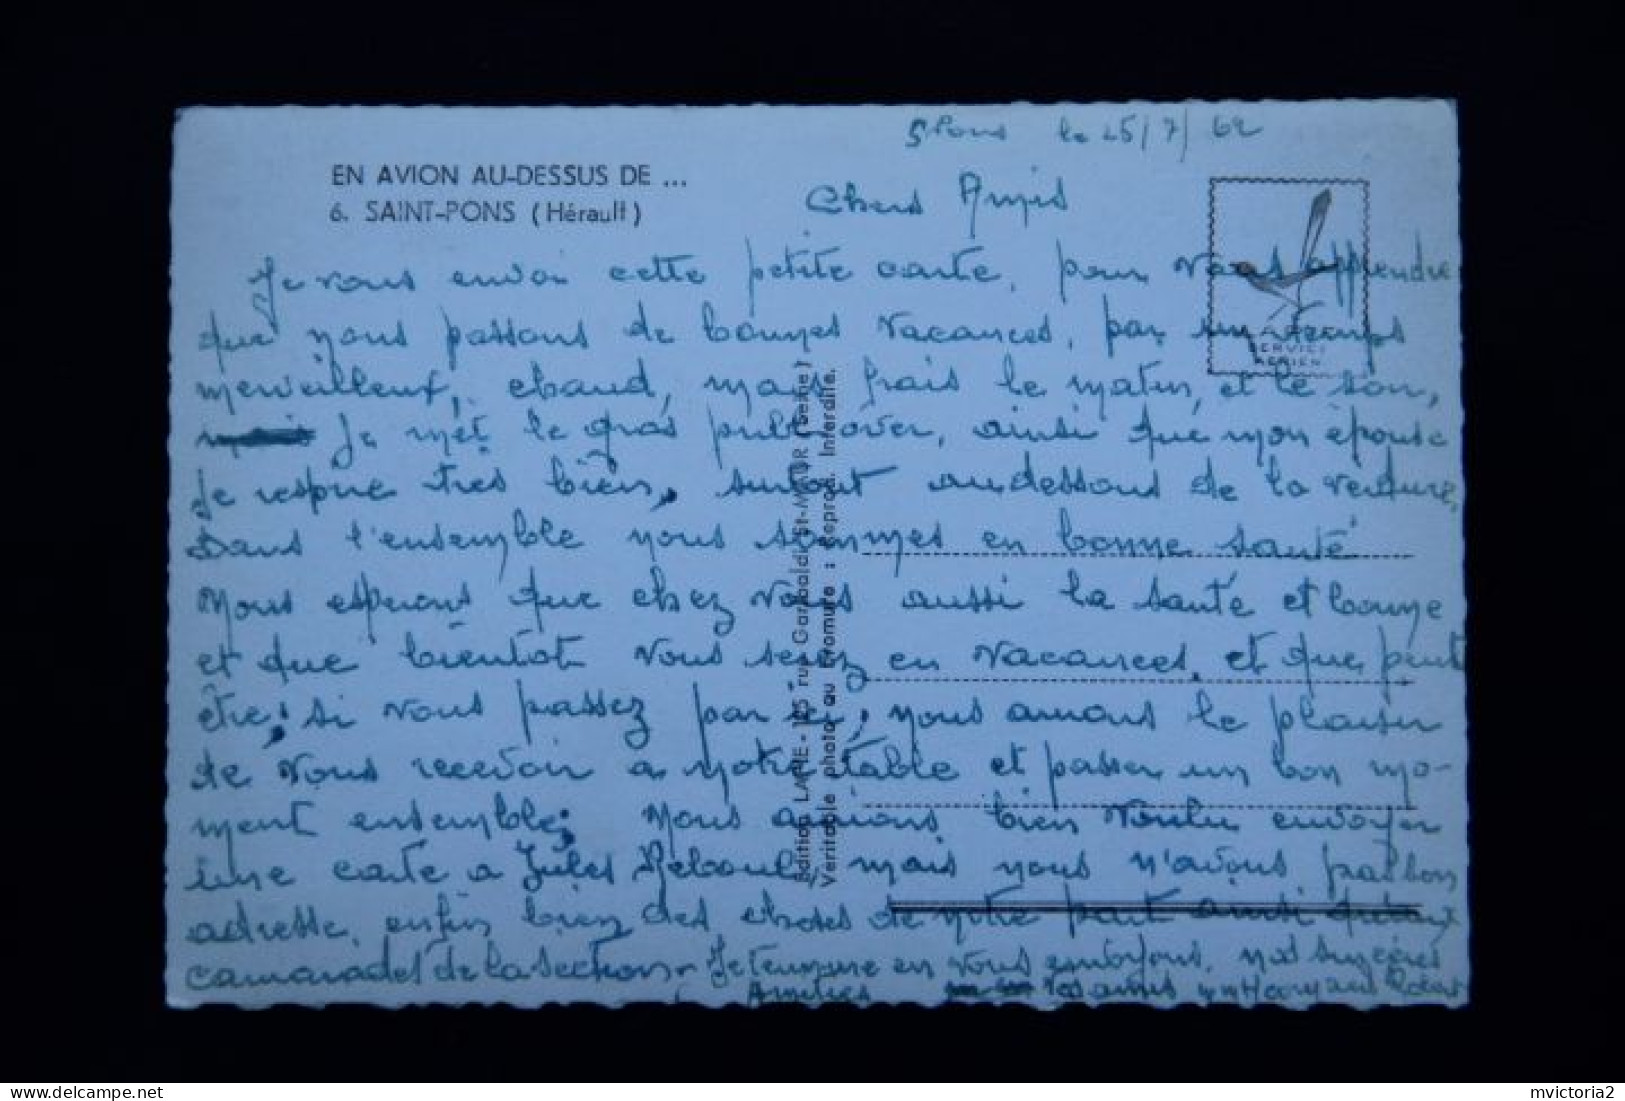 S Pons le 25/7/62
EN AVION AU-DESSUS DE ...
6. SAINT-PONS (Hérault)
Chers Amis
SERVICE
AERIEN
Je vous envoi cette petite carte, pour vous apprendre
que nous passons de bonnes vacances, par un temps
merveilleux, chaud, mais frais le matin, et le soir,
Je met le gros pull over, ainsi que mon épouse
je respire très bien, surtout au dessous de la verdure.
Dans l'ensemble nous sommes en bonne santé
Nous espérons que chez vous aussi la santé et bonne
et que bientot vous serez en vacances, et que peut
être, si vous passez par ici, nous aurions le plaisir
de vous recevoir a notre table et passer un bon mo-
ment ensemble. Nous aurions bien voulu envoyer
une carte a Jules Reboul, mais nous n'avons pas son
adresse, enfin bien des choses de notre part ainsi qu'aux
camarades de la section. Je termine en vous envoyons, nos sincères
Amitiés Vos amis
Edition LAPIE - 185 rue Garibaldi St-MAUR (Seine)
Véritable photo au Bromure : Reprod. Interdite.
delcampe.net
mvictoria2